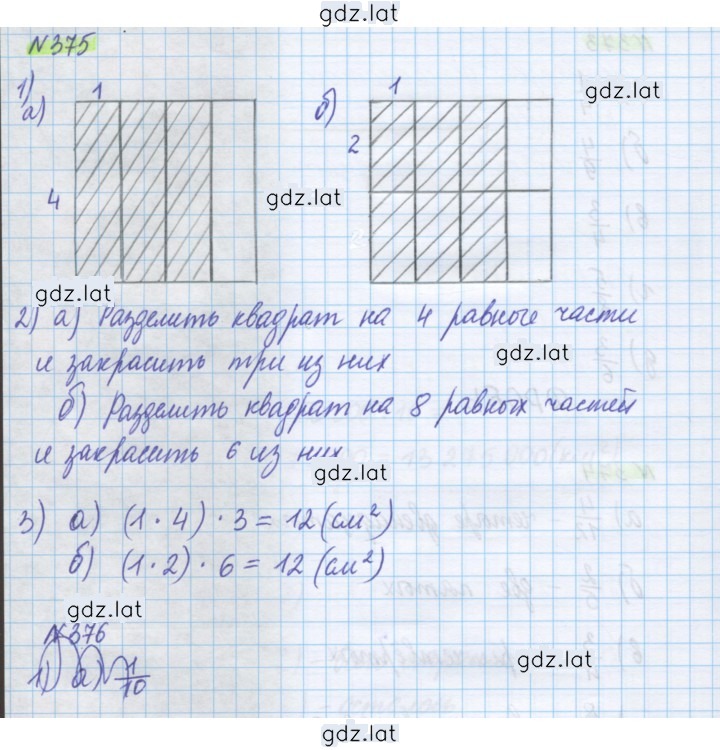 gdz.lat
№375
1)
1
1
а)
б)
gdz.lat
2
4
gdz.lat
gdz.lat
2) а) Разделить квадрат на 4 равные части
и закрасить три из них
gdz.lat
б) Разделить квадрат на 8 равных частей
и закрасить 6 из них
gdz.lat
3) а) (1 · 4) · 3 = 12 (см²)
б) (1 · 2) · 6 = 12 (см²)
gdz.lat
№376
gdz.lat
1) а) 1/10
gdz.lat